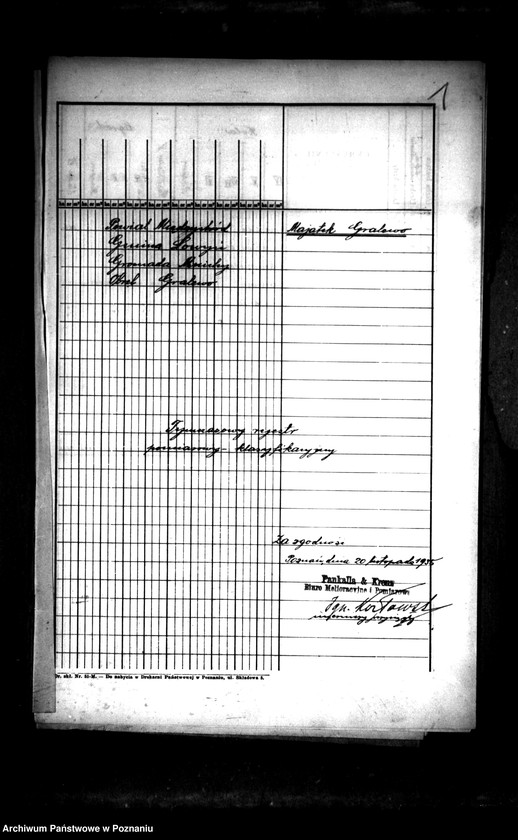 1
Powiat Międzychód
Gmina Łowyń
Gromada Mnichy
Obręb Gralewo
Majątek Gralewo
Tymczasowy rejestr
pomiarowy - klasyfikacyjny
Za zgodność
Poznań, dnia 20 listopada
Pankalla & Krenz
Biuro Melioracyjne i Pomiarowe
Ign.
Nr. skł. Nr. 51-M. — Do nabycia w Drukarni Państwowej w Poznaniu, ul. Składowa 5.
Archiwum Państwowe w Poznaniu